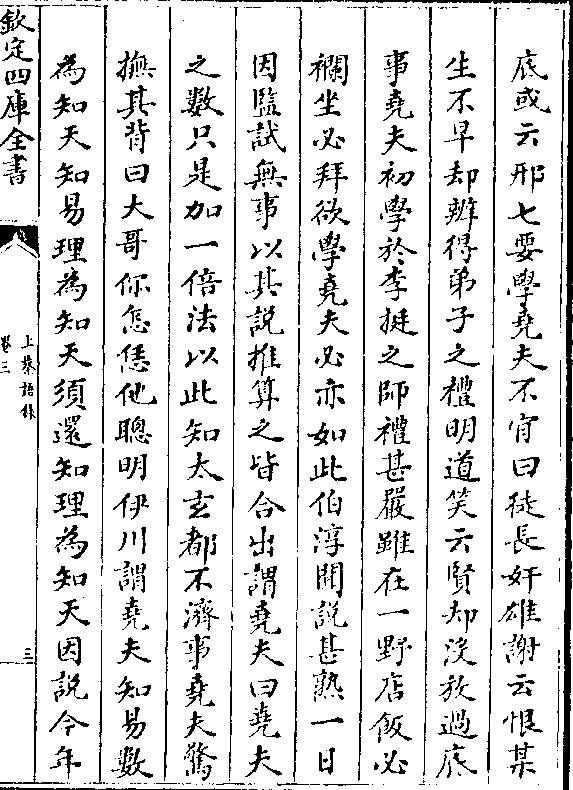 底或云邢七要學堯夫不肯曰徒長奸雄謝云恨某
生不早却辨得弟子之禮明道笑云賢却沒放過底
事堯夫初學於李挺之師禮甚嚴雖在一野店飯必
襴坐必拜欲學堯夫必亦如此伯淳聞說甚熟一日
因監試無事以其說推算之皆合出謂堯夫曰堯夫
之數只是加一倍法以此知太玄都不濟事堯夫驚
撫其背曰大哥你怎恁他聰明伊川謂堯夫知易數
為知天知易理為知天須還知理為知天因說今年
欽定四庫全書
上蔡語錄
卷三
三